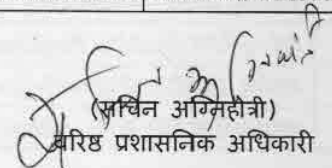 (सचिन अग्निहोत्री)
वरिष्ठ प्रशासनिक अधिकारी